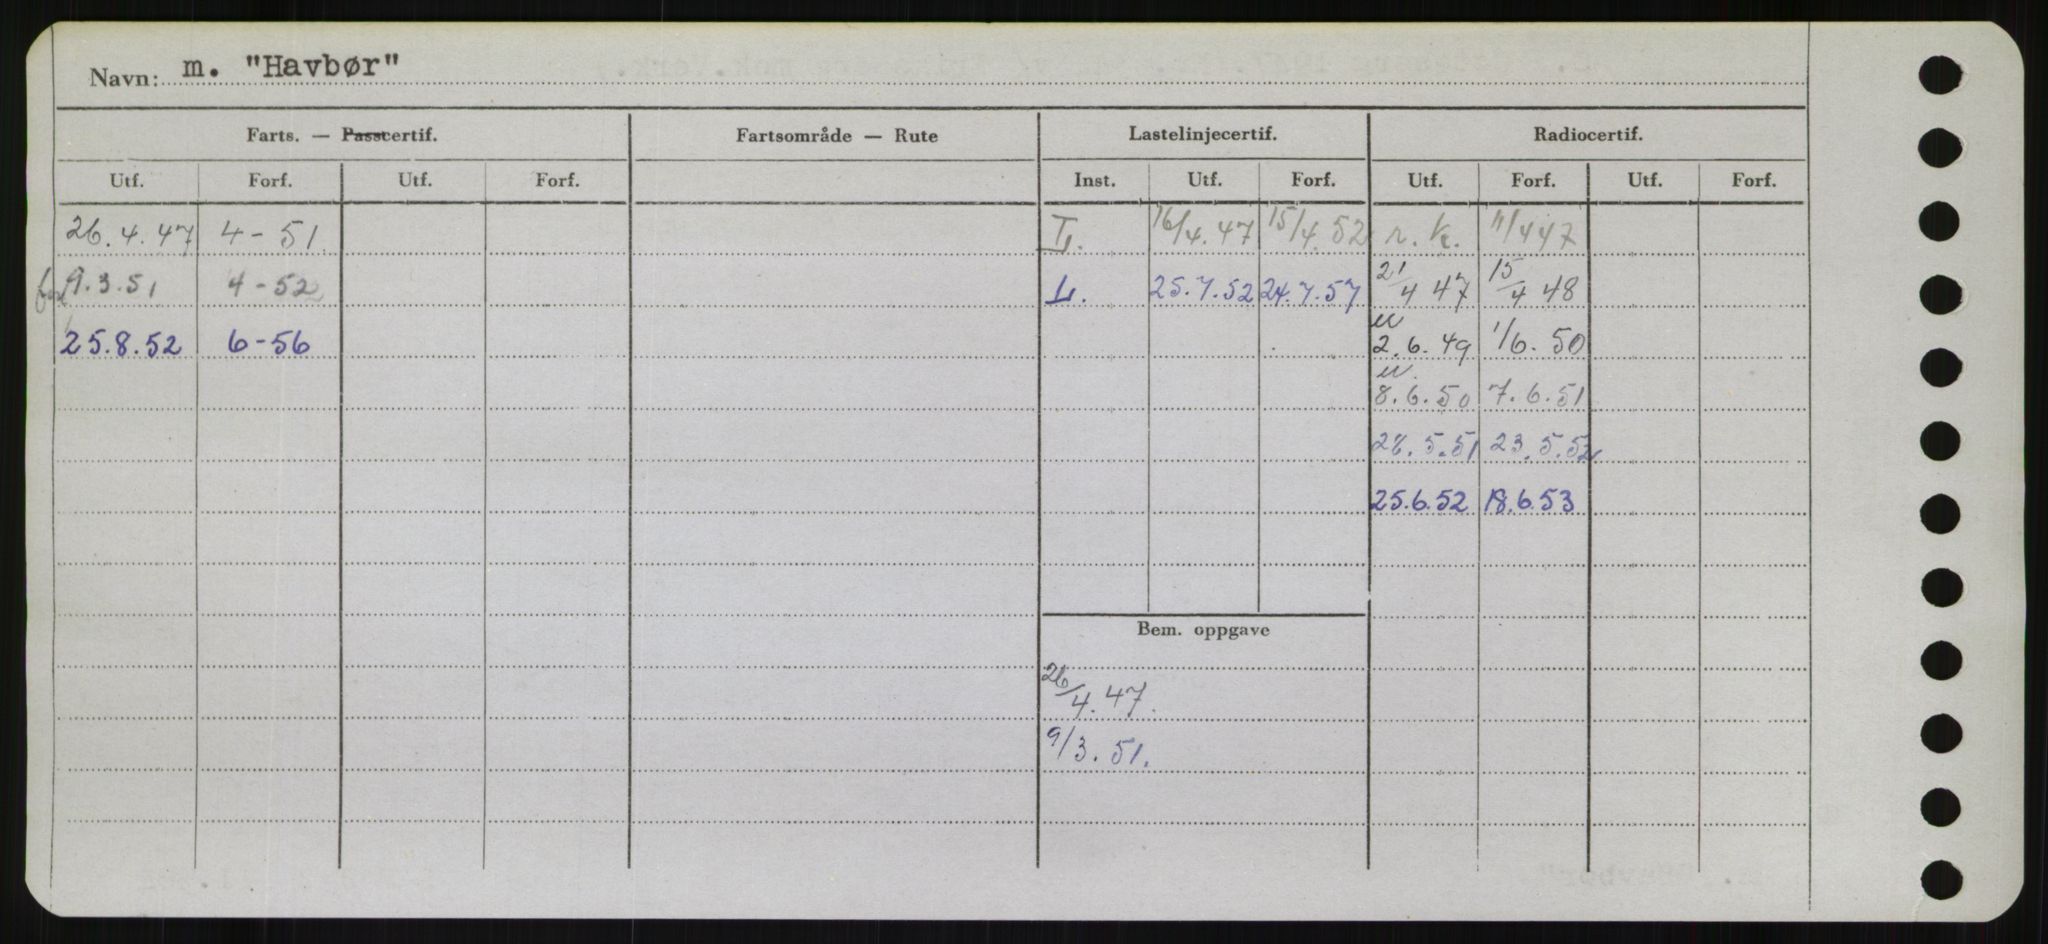 Navn: m. "Havbør"
Farts. — Passcertif. Fartsområde — Rute Lastelinjecertif. Radiocertif.
Utf. Forf. Utf. Forf. Inst. Utf. Forf. Utf. Forf. Utf. Forf.
26.4.47 4-51 L. 16/4.47 15/4.52 r.k. 11/4 47
9.3.51 4-52 L. 25.7.52 24.7.57 21/4 47 15/4 48
25.8.52 6-56 2.6.49 1/6.50
8.6.50 7.6.51
28.5.51 23.5.52
25.6.52 18.6.53
Bem. oppgave
26/4.47.
9/3.51.